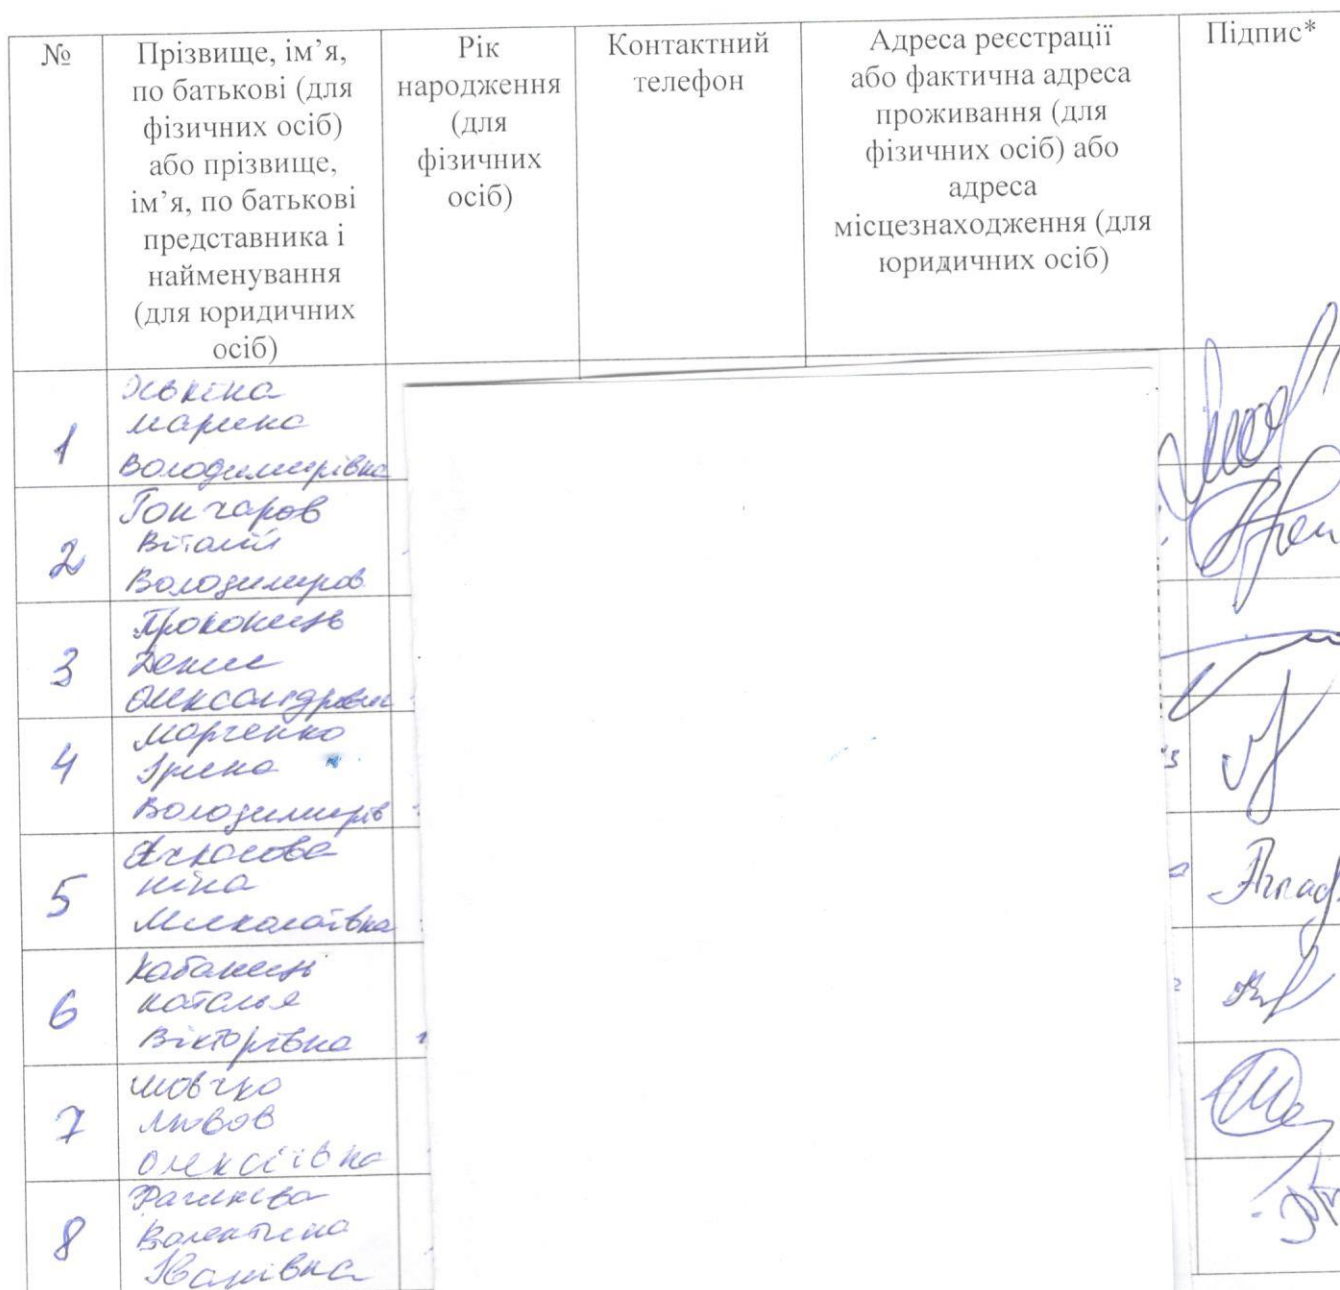 №
Прізвище, ім’я,
по батькові (для
фізичних осіб)
або прізвище,
ім’я, по батькові
представника і
найменування
(для юридичних
осіб)
Рік
народження
(для
фізичних
осіб)
Контактний
телефон
Адреса реєстрації
або фактична адреса
проживання (для
фізичних осіб) або
адреса
місцезнаходження (для
юридичних осіб)
Підпис*
1
Марина
Володимирівна
2
Гончаров
Віталій
Володимиров
3
Денис
Олександрович
4
Марченко
Ірина
Володимирів
5
Ніна
Миколаївна
6
Кабанець
Наталья
Вікторівна
7
Шовчко
Любов
Олексіївна
8
Валентина
Іванівна